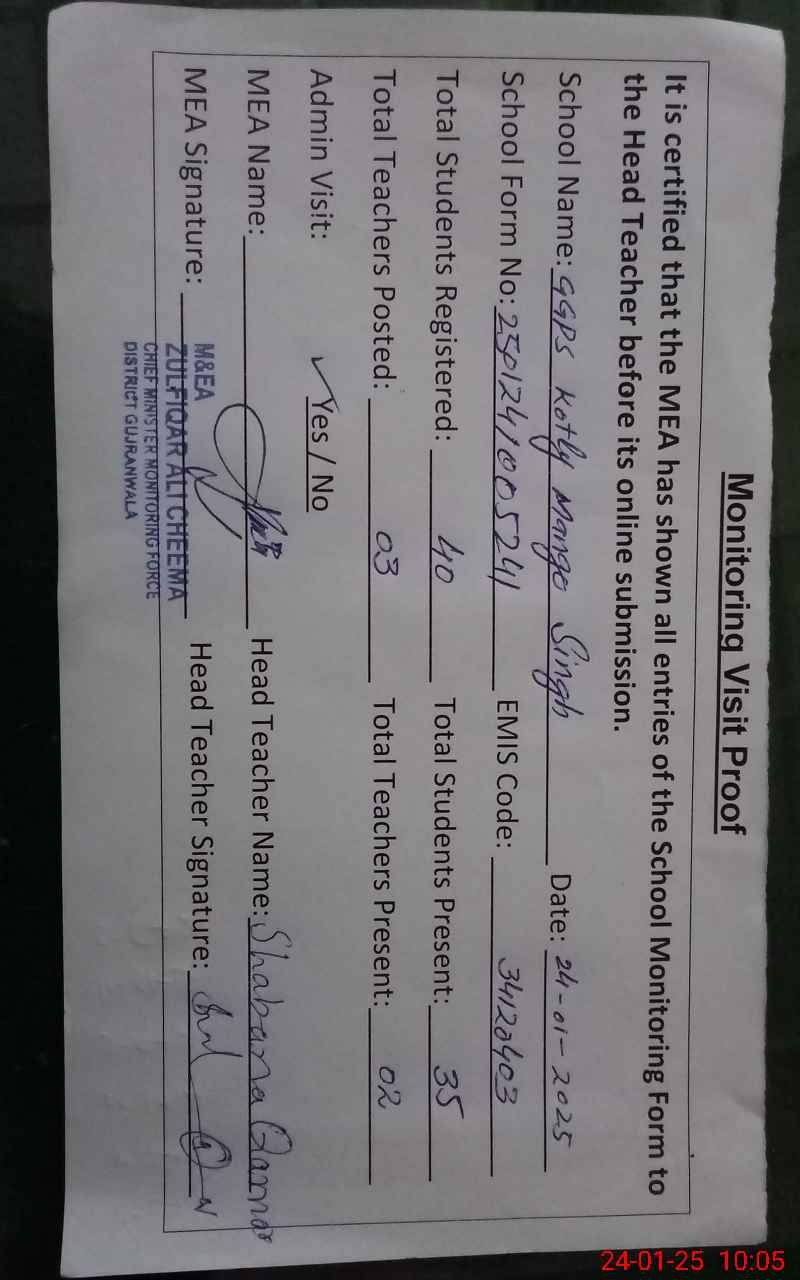 Monitoring Visit Proof
It is certified that the MEA has shown all entries of the School Monitoring Form to
the Head Teacher before its online submission.
School Name: GGPS Kotly Mango Singh Date: 24-01-2025
School Form No: 25P1241005241 EMIS Code: 34120403
Total Students Registered: 40 Total Students Present: 35
Total Teachers Posted: 03 Total Teachers Present: 02
Admin Visit: ✓Yes / No
MEA Name: Head Teacher Name: Shabana Qamar
MEA Signature: Head Teacher Signature:
M&EA
ZULFIQAR ALI CHEEMA
CHIEF MINISTER MONITORING FORCE
DISTRICT GUJRANWALA
24-01-25 10:05